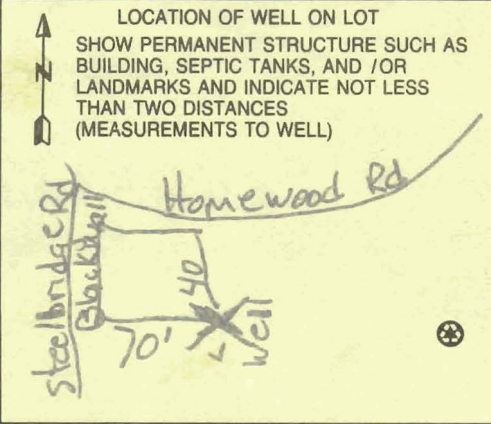 LOCATION OF WELL ON LOT
SHOW PERMANENT STRUCTURE SUCH AS
BUILDING, SEPTIC TANKS, AND /OR
LANDMARKS AND INDICATE NOT LESS
THAN TWO DISTANCES
(MEASUREMENTS TO WELL)
N
Homewood Rd
Steelbridge Rd
40
70'
Well